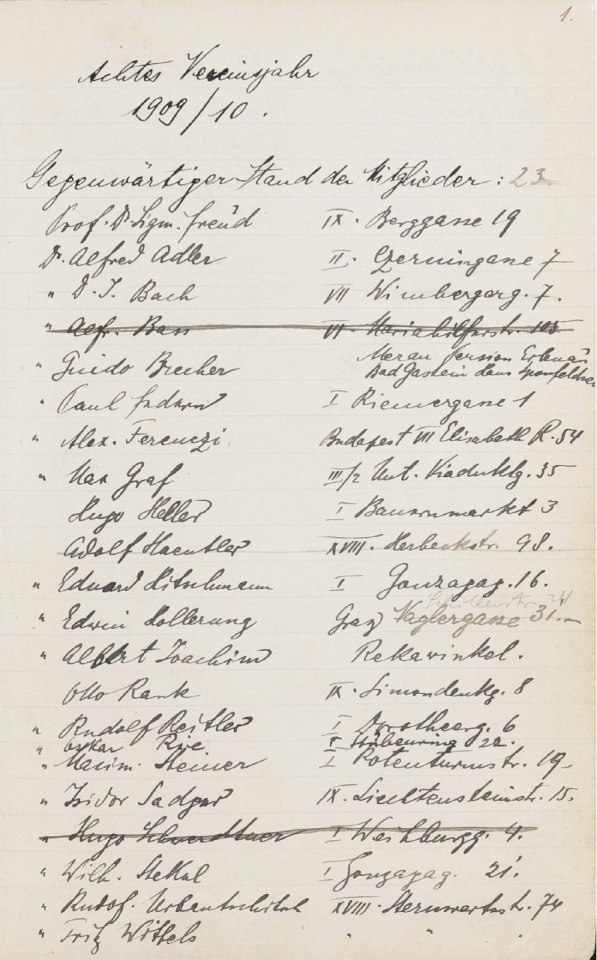 1.
Achtes Vereinsjahr
1909/10.
Gegenwärtiger Stand der Mitglieder : 23
Prof. Dr. Sigm. Freud IX. Berggasse 19
Dr. Alfred Adler II. Czerningasse 7
" D. J. Bach VII Wimbergerg. 7.
" Alfr. Bass VI. Mariahilferstr. 105
" Guido Brecher Meran Pension Erlenau
Bad Gastein Haus
" Paul Federn I Riemergasse 1
" Alex. Ferenczi Budapest VII Elisabeth R. 54
" Max Graf III/2 Unt. Viaduktg. 35
Hugo Heller I Bauernmarkt 3
Adolf Haeutler XVIII. Herbeckstr. 98.
" Eduard Hitschmann I Gonzagag. 16.
" Edwin Hollerung Graz 31.
" Albert Joachim Rekawinkel.
Otto Rank IX. Simondenkg. 8
" Rudolf Reitler I Dorotheerg. 6
" Oskar Rie. Stubenring 22.
" Maxim. Steiner I Rotenturmstr. 19
" Isidor Sadger IX. Liechtensteinstr. 15.
" Hugo Schwerdtner I Weihburgg. 4.
" Wilh. Stekel I Gonzagag. 21.
" Rudof. Urbantschitsch XVIII. Sternwartestr. 74
" Fritz Wittels " "